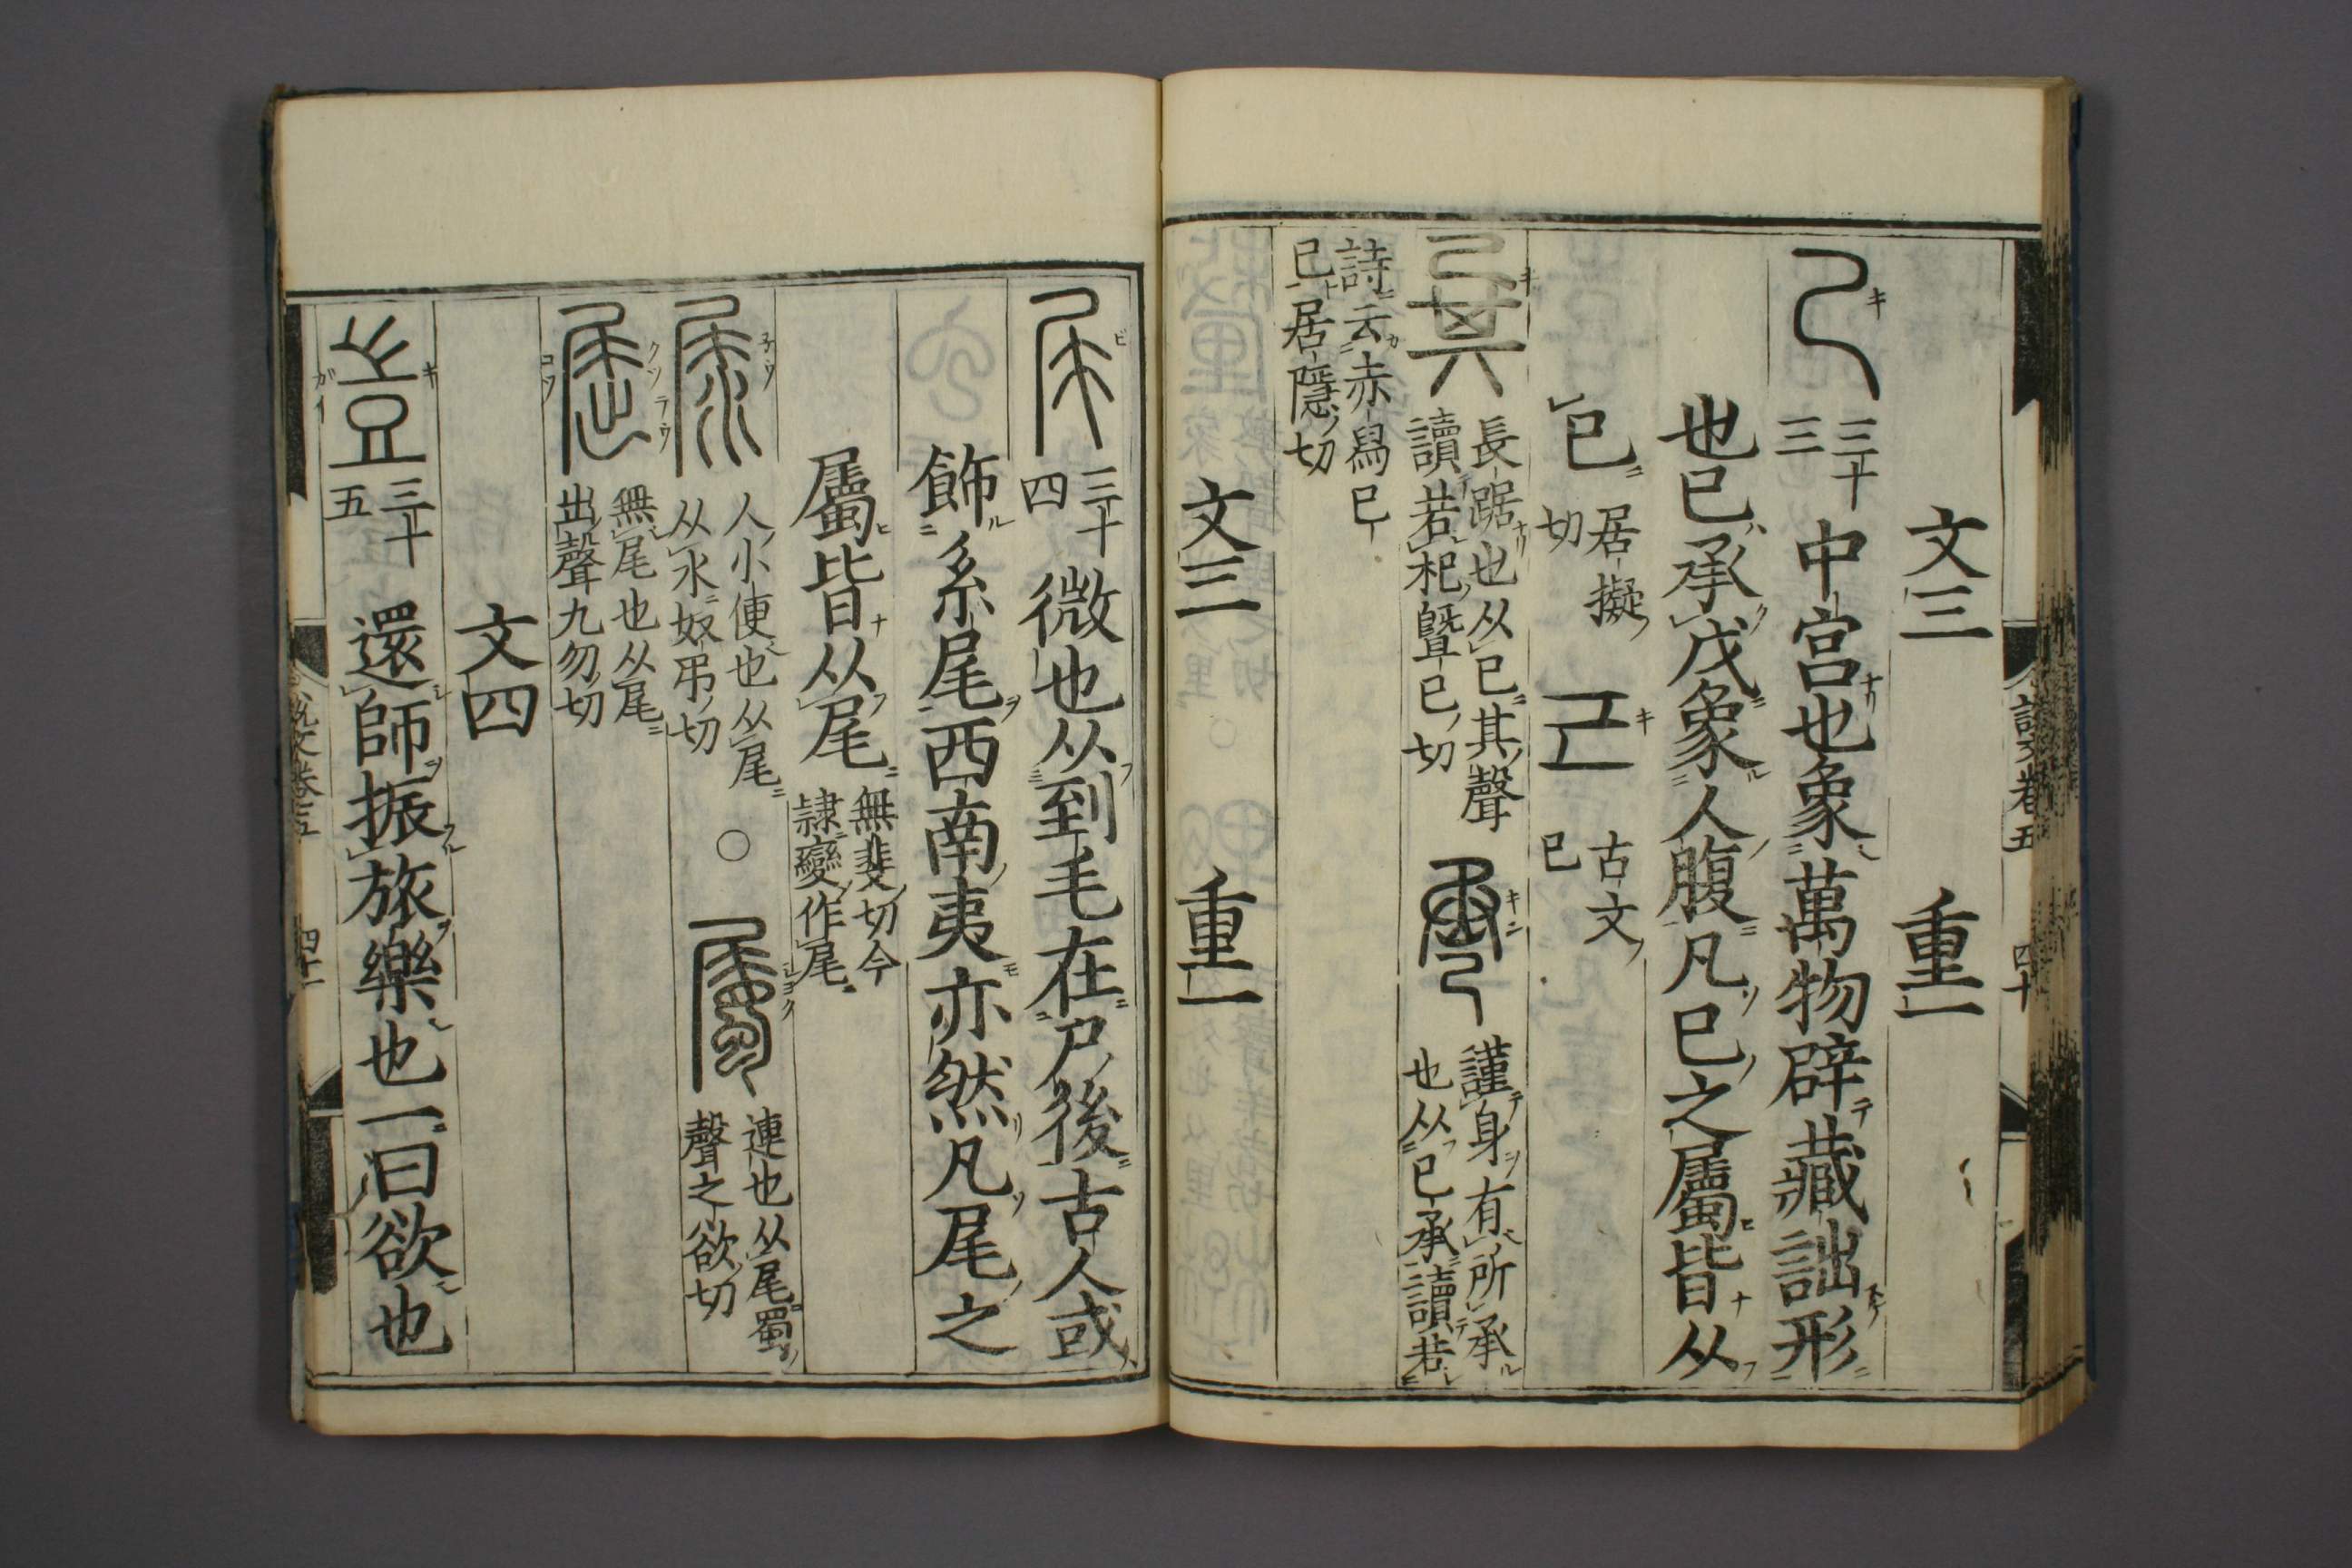 文三　重一
三十三　中宮也象萬物辟藏詘形
也已承戊象人腹凡已之屬皆从
已　居擬切　古文已
長踞也从已其聲
讀若杞曁已切
謹身有所承
也从已承讀若
詩云赤舄已
已居隱切
文三　重一
說文卷五　四十
三十四　微也从到毛在尸後古人或
飾系尾西南夷亦然凡尾之
屬皆从尾　無斐切今
隷變作尾
人小便也从尾
从水奴弔切
○
連也从尾蜀
聲之欲切
無尾也从尾
出聲九勿切
文四
三十五　還師振旅樂也一曰欲也
說文卷五　四十一